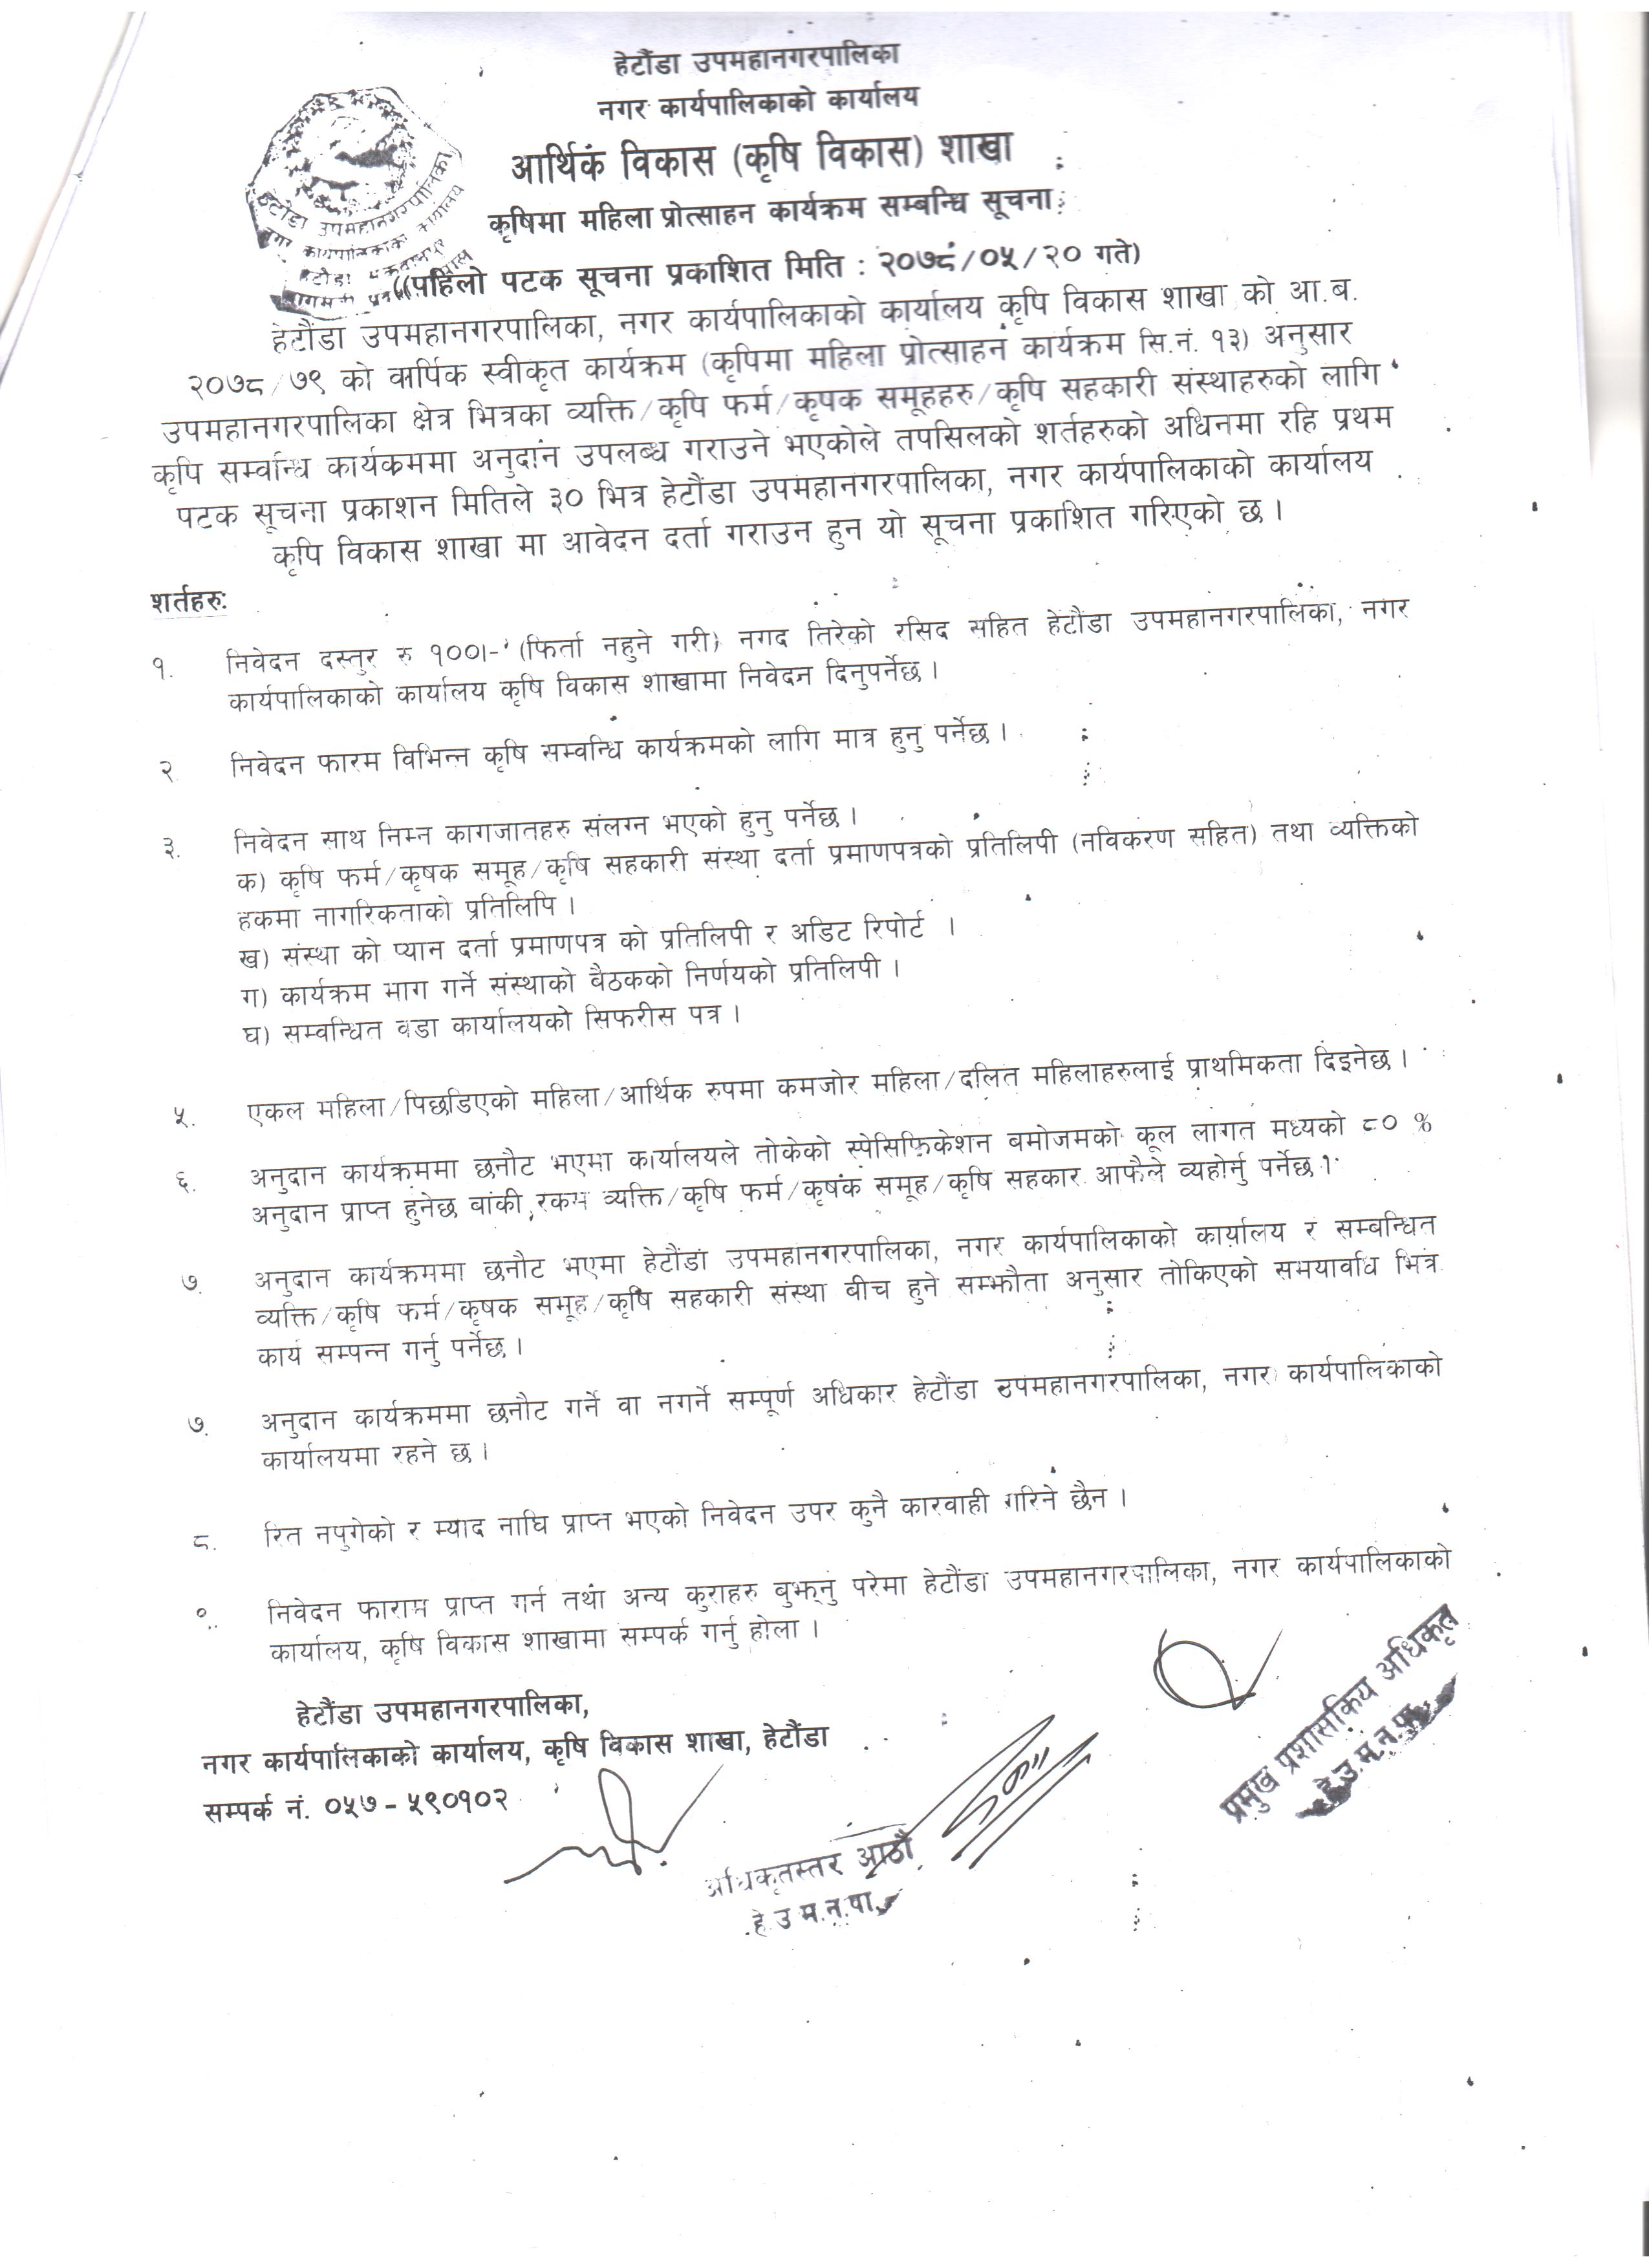 हेटौंडा उपमहानगरपालिका
नगर कार्यपालिकाको कार्यालय
आर्थिक विकास (कृषि विकास) शाखा
कृषिमा महिला प्रोत्साहन कार्यक्रम सम्बन्धि सूचना
((पहिलो पटक सूचना प्रकाशित मिति : २०७८/०५/२० गते)
हेटौंडा उपमहानगरपालिका
कार्यपालिकाको कार्यालय
हेटौंडा उपमहानगरपालिका, नगर कार्यपालिकाको कार्यालय कृषि विकास शाखा को आ.ब.
२०७८/७९ को वार्षिक स्वीकृत कार्यक्रम (कृषिमा महिला प्रोत्साहन कार्यक्रम सि.नं. १३) अनुसार
उपमहानगरपालिका क्षेत्र भित्रका व्यक्ति/कृषि फर्म/कृषक समूहहरु/कृषि सहकारी संस्थाहरुको लागि
कृषि सम्वन्धि कार्यक्रममा अनुदान उपलब्ध गराउने भएकोले तपसिलको शर्तहरुको अधिनमा रहि प्रथम
पटक सूचना प्रकाशन मितिले ३० भित्र हेटौंडा उपमहानगरपालिका, नगर कार्यपालिकाको कार्यालय
कृषि विकास शाखा मा आवेदन दर्ता गराउन हुन यो सूचना प्रकाशित गरिएको छ ।
शर्तहरु:
१. निवेदन दस्तुर रु १००।- (फिर्ता नहुने गरी) नगद तिरेको रसिद सहित हेटौंडा उपमहानगरपालिका, नगर
कार्यपालिकाको कार्यालय कृषि विकास शाखामा निवेदन दिनुपर्नेछ ।
२ निवेदन फारम विभिन्न कृषि सम्वन्धि कार्यक्रमको लागि मात्र हुनु पर्नेछ ।
३. निवेदन साथ निम्न कागजातहरु संलग्न भएको हुनु पर्नेछ ।
क) कृषि फर्म/कृषक समूह/कृषि सहकारी संस्था दर्ता प्रमाणपत्रको प्रतिलिपी (नविकरण सहित) तथा व्यक्तिको
हकमा नागरिकताको प्रतिलिपि ।
ख) संस्था को प्यान दर्ता प्रमाणपत्र को प्रतिलिपी र अडिट रिपोर्ट ।
ग) कार्यक्रम माग गर्ने संस्थाको बैठकको निर्णयको प्रतिलिपी ।
घ) सम्वन्धित वडा कार्यालयको सिफरीस पत्र ।
५. एकल महिला/पिछडिएको महिला/आर्थिक रुपमा कमजोर महिला/दलित महिलाहरुलाई प्राथमिकता दिइनेछ ।
६. अनुदान कार्यक्रममा छनौट भएमा कार्यालयले तोकेको स्पेसिफिकेशन बमोजमको कूल लागत मध्यको ८० %
अनुदान प्राप्त हुनेछ बांकी रकम व्यक्ति/कृषि फर्म/कृषक समूह/कृषि सहकार आफैले व्यहोर्नु पर्नेछ ।
७. अनुदान कार्यक्रममा छनौट भएमा हेटौंडा उपमहानगरपालिका, नगर कार्यपालिकाको कार्यालय र सम्बन्धित
व्यक्ति/कृषि फर्म/कृषक समूह/कृषि सहकारी संस्था बीच हुने सम्झौता अनुसार तोकिएको समयावधि भित्र
कार्य सम्पन्न गर्नु पर्नेछ ।
७. अनुदान कार्यक्रममा छनौट गर्ने वा नगर्ने सम्पूर्ण अधिकार हेटौंडा उपमहानगरपालिका, नगर कार्यपालिकाको
कार्यालयमा रहने छ ।
८. रित नपुगेको र म्याद नाघि प्राप्त भएको निवेदन उपर कुनै कारवाही गरिने छैन ।
निवेदन फाराम प्राप्त गर्न तथा अन्य कुराहरु बुझ्नु परेमा हेटौंडा उपमहानगरपालिका, नगर कार्यपालिकाको
कार्यालय, कृषि विकास शाखामा सम्पर्क गर्नु होला ।
हेटौंडा उपमहानगरपालिका,
नगर कार्यपालिकाको कार्यालय, कृषि विकास शाखा, हेटौंडा
सम्पर्क नं. ०५७ - ५९०१०२
अधिकृतस्तर आठौं
हे.उ.म.न.पा.
प्रमुख प्रशासकिय अधिकृत
हे.उ.म.न.पा.